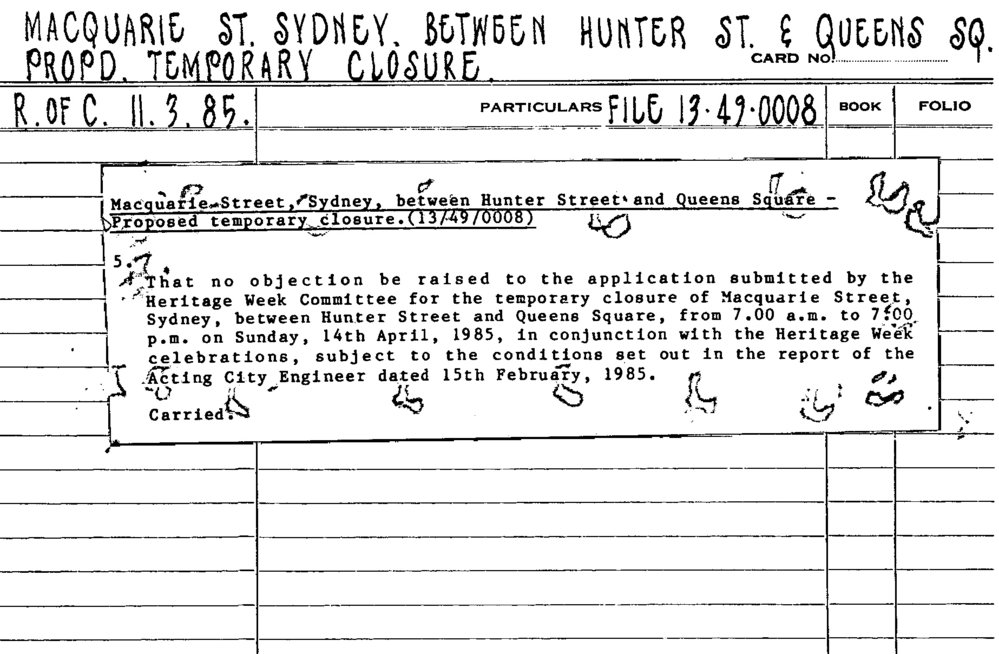 MACQUARIE ST. SYDNEY. BETWEEN HUNTER ST. & QUEENS SQ.
PROPD. TEMPORARY CLOSURE.
CARD No.
R. OF C. 11. 3. 85. PARTICULARS FILE 13·49·0008 BOOK FOLIO
Macquarie Street, Sydney, between Hunter Street and Queens Square -
Proposed temporary closure.(13/49/0008)
5.7
That no objection be raised to the application submitted by the
Heritage Week Committee for the temporary closure of Macquarie Street,
Sydney, between Hunter Street and Queens Square, from 7.00 a.m. to 7.00
p.m. on Sunday, 14th April, 1985, in conjunction with the Heritage Week
celebrations, subject to the conditions set out in the report of the
Acting City Engineer dated 15th February, 1985.
Carried.